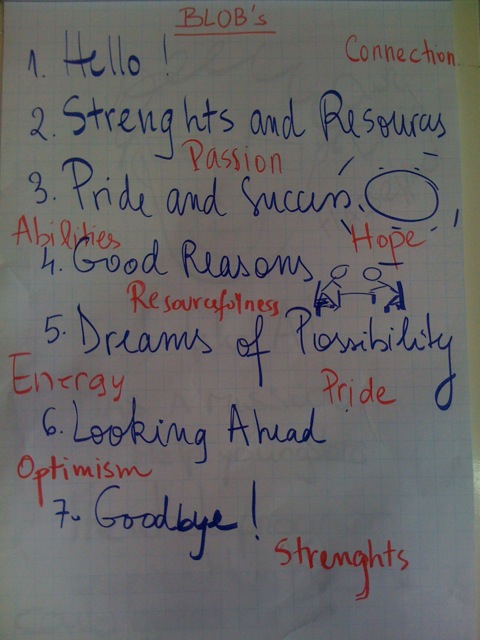 BLOB's
1. Hello !
Connection
2. Strenghts and Resources
Passion
3. Pride and Success.
Abilities
Hope
4. Good Reasons
Resourcefulness
5. Dreams of Possibility
Energy
Pride
6. Looking Ahead
Optimism
7. Goodbye !
Strenghts